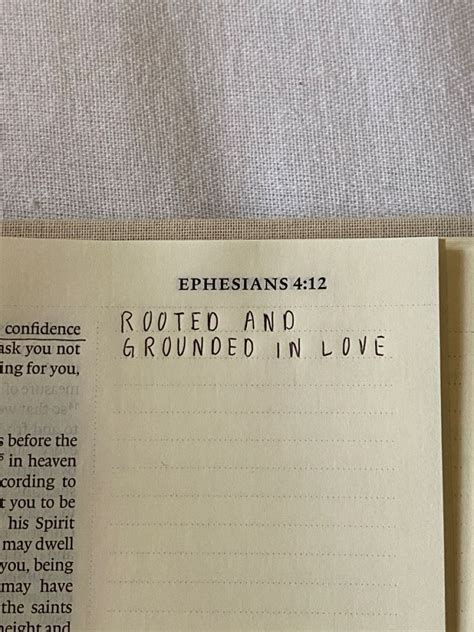 EPHESIANS 4:12
ROOTED AND
GROUNDED IN LOVE
confidence
ask you not
ing for you,
s before the
5 in heaven
cording to
t you to be
his Spirit
may dwell
you, being
may have
the saints
height and